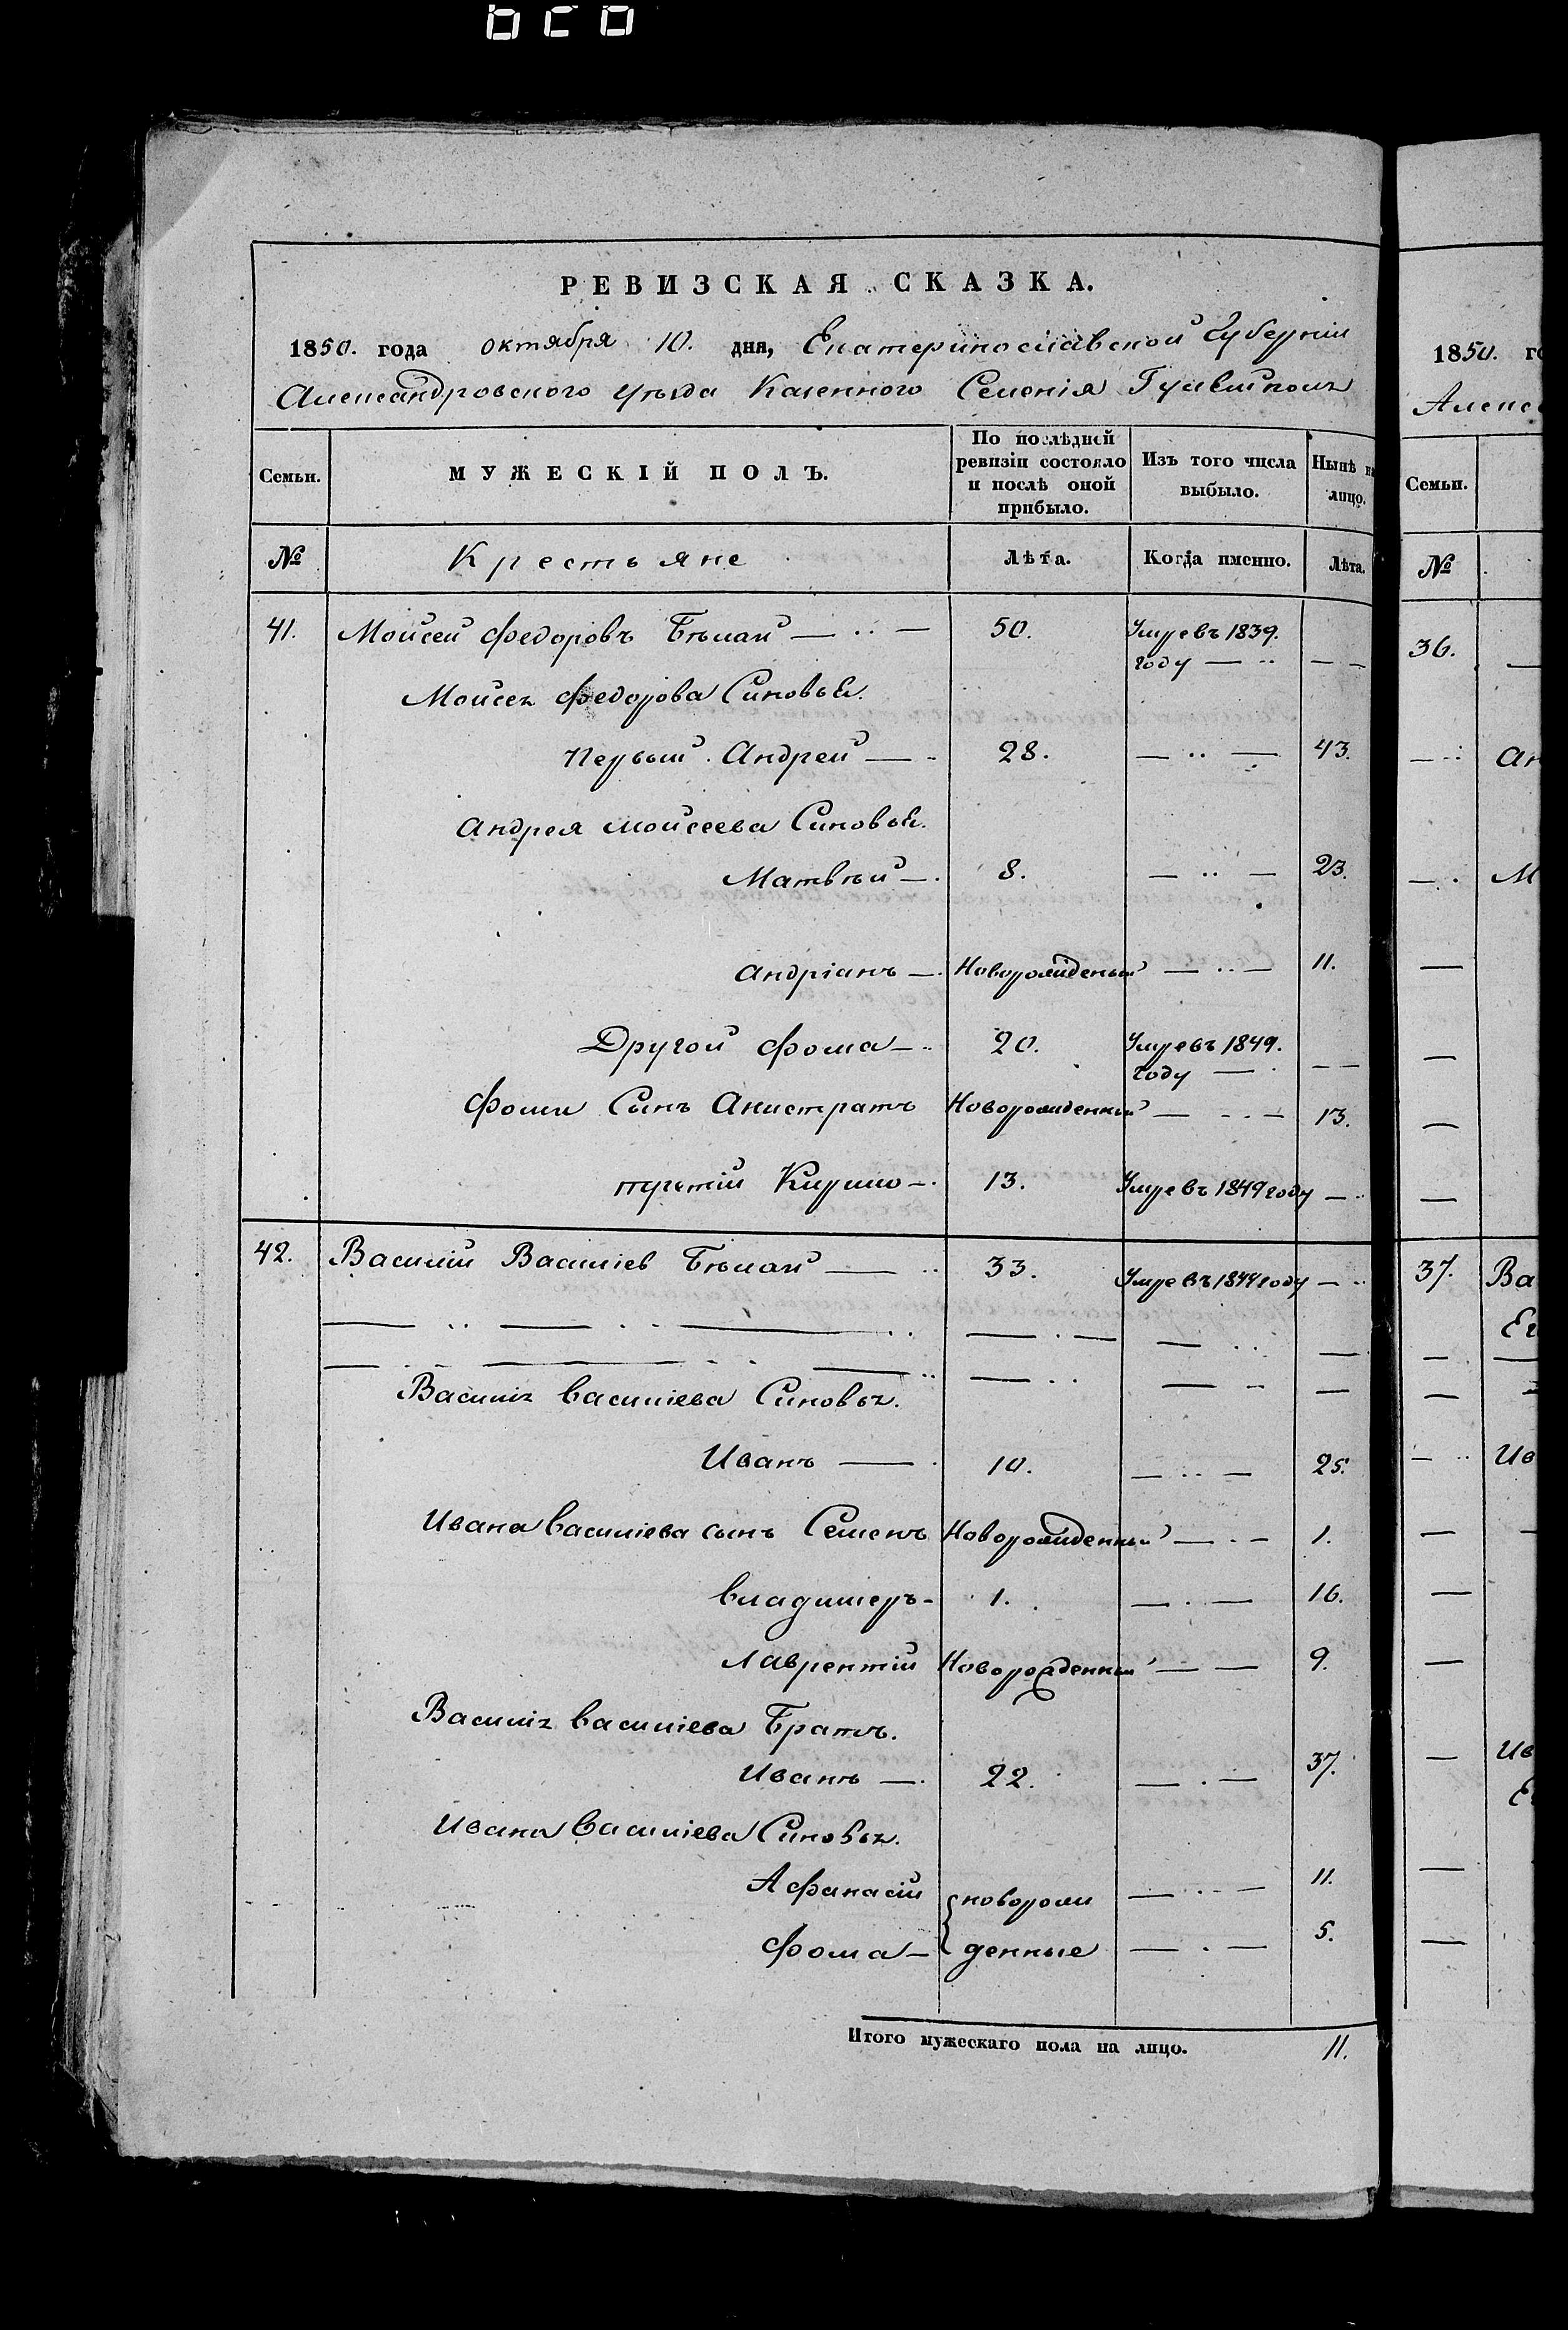 РЕВИЗСКАЯ СКАЗКА.
1850. года октября 10. дня, Екатеринославской Губерніи
Александровского уѣзда Казенного Селенія
Семьи. МУЖЕСКІЙ ПОЛЪ. По послѣдней ревизіи состояло и послѣ оной прибыло. Изъ того числа выбыло. Нынѣ на лицо. Семьи.
№ Крестьяне Лѣта. Когда именно. Лѣта. №
41. Моисей Федоровъ Бѣлай 50. Умре въ 1839. году
Моисея Федорова Синовья.
Первый Андрей 28. 43.
Андрея Моисеева Синовья.
Матвѣй 8. 23.
Андріанъ Новорожденый 11.
Другой Фома 20. Умре въ 1849. году
Фоми Сынъ Анистратъ Новорожденный 13.
третій Кирило 13. Умре въ 1849 году
42. Василій Василіев Бѣлай 33. Умре въ 1844 году
Василія Василіева Синовья.
Иванъ 10. 25.
Ивана Василіева сынъ Семенъ Новорожденный 1.
Владимеръ 1. 16.
Лаврентій Новорожденный 9.
Василія Василіева Братъ.
Иванъ 22. 37.
Ивана Василіева Синовья.
Афанасій новорож 11.
Фома денные 5.
Итого мужескаго пола на лицо. 11.
1850. го
Алекса
36.
Ан
М
37. Ва
Ив
Ив